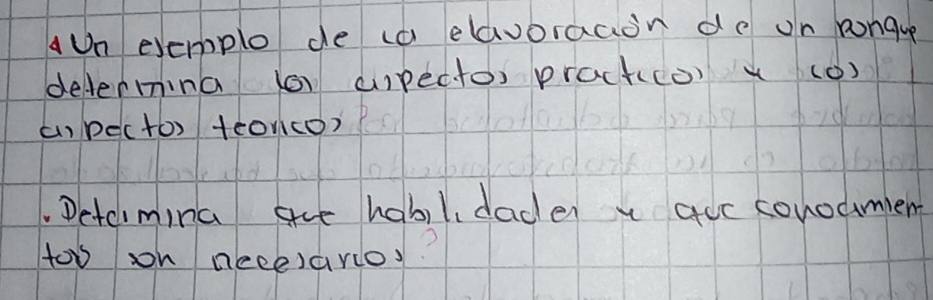 Un ejemplo de la elavoración de un ponque
determina los aspectos practicos y los
aspectos teoricos?
. Determina que habilidades y que conocimien
tos son necesarios?